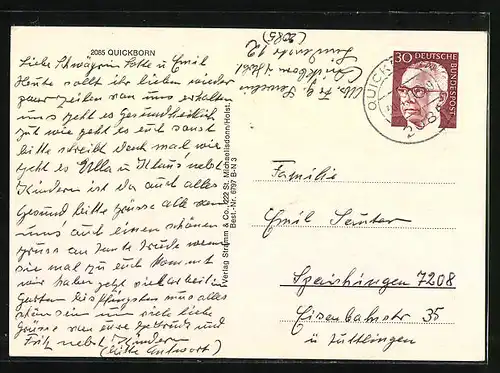 2085 QUICKBORN
Liebe Schwägerin Lotte u Emil
Heute sollt ihr lieben wieder
paar zeilen von uns erhalten
uns geht es Gesundheitlich
gut wie geht es euch sonst
bitte schreibt doch mal wie
geht es Ulla u Klaus nebst
Kindern ist da auch alles
Gesund bitte grüsse alle von
uns auch einen schönen
gruss an Tante Trude wenn
sie mal zu euch kommt
wir haben jetzt viel arbeit im
Garten bis Pfingsten muss alles
schön sein nun viele liebe
Grüsse von eure Gertrud und
Fritz nebst Kinder
(bitte Antwort)
Abs. F. G.
Quickborn / Holst
12
(2085)
Verlag Stramm & Co. 2222 St. Michaelisdonn/Holst.
Best.-Nr. 6797 B-N 3
30
DEUTSCHE
BUNDESPOST
QUICK
208
Familie
Emil Sauter
Spaichingen 7208
Eisenbahnstr 35
ü Tuttlingen